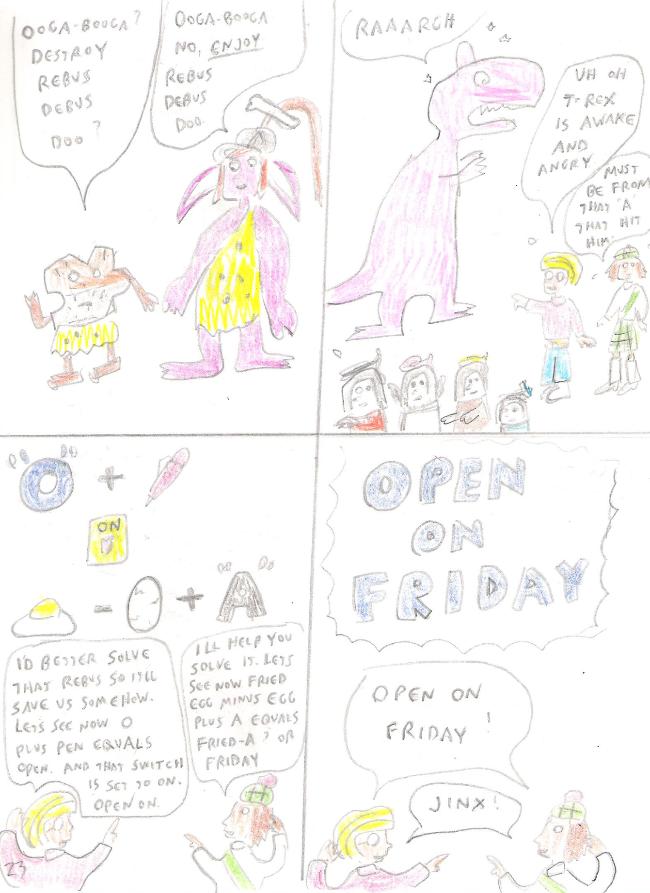 OOGA-BOOGA?
DESTROY
REBUS
DEBUS
DOO?
OOGA-BOOGA
NO, ENJOY
REBUS
DEBUS
DOO.
RAAARGH
UH OH
T-REX
IS AWAKE
AND
ANGRY
MUST
BE FROM
THAT 'A'
THAT HIT
HIM.
O +
ON
- O + A
I'D BETTER SOLVE
THAT REBUS SO IT'LL
SAVE US SOMEHOW.
LET'S SEE NOW O
PLUS PEN EQUALS
OPEN. AND THAT SWITCH
IS SET TO ON.
OPEN ON.
I'LL HELP YOU
SOLVE IT. LETS
SEE NOW FRIED
EGG MINUS EGG
PLUS A EQUALS
FRIED-A? OR
FRIDAY
23
OPEN
ON
FRIDAY
OPEN ON
FRIDAY!
JINX!